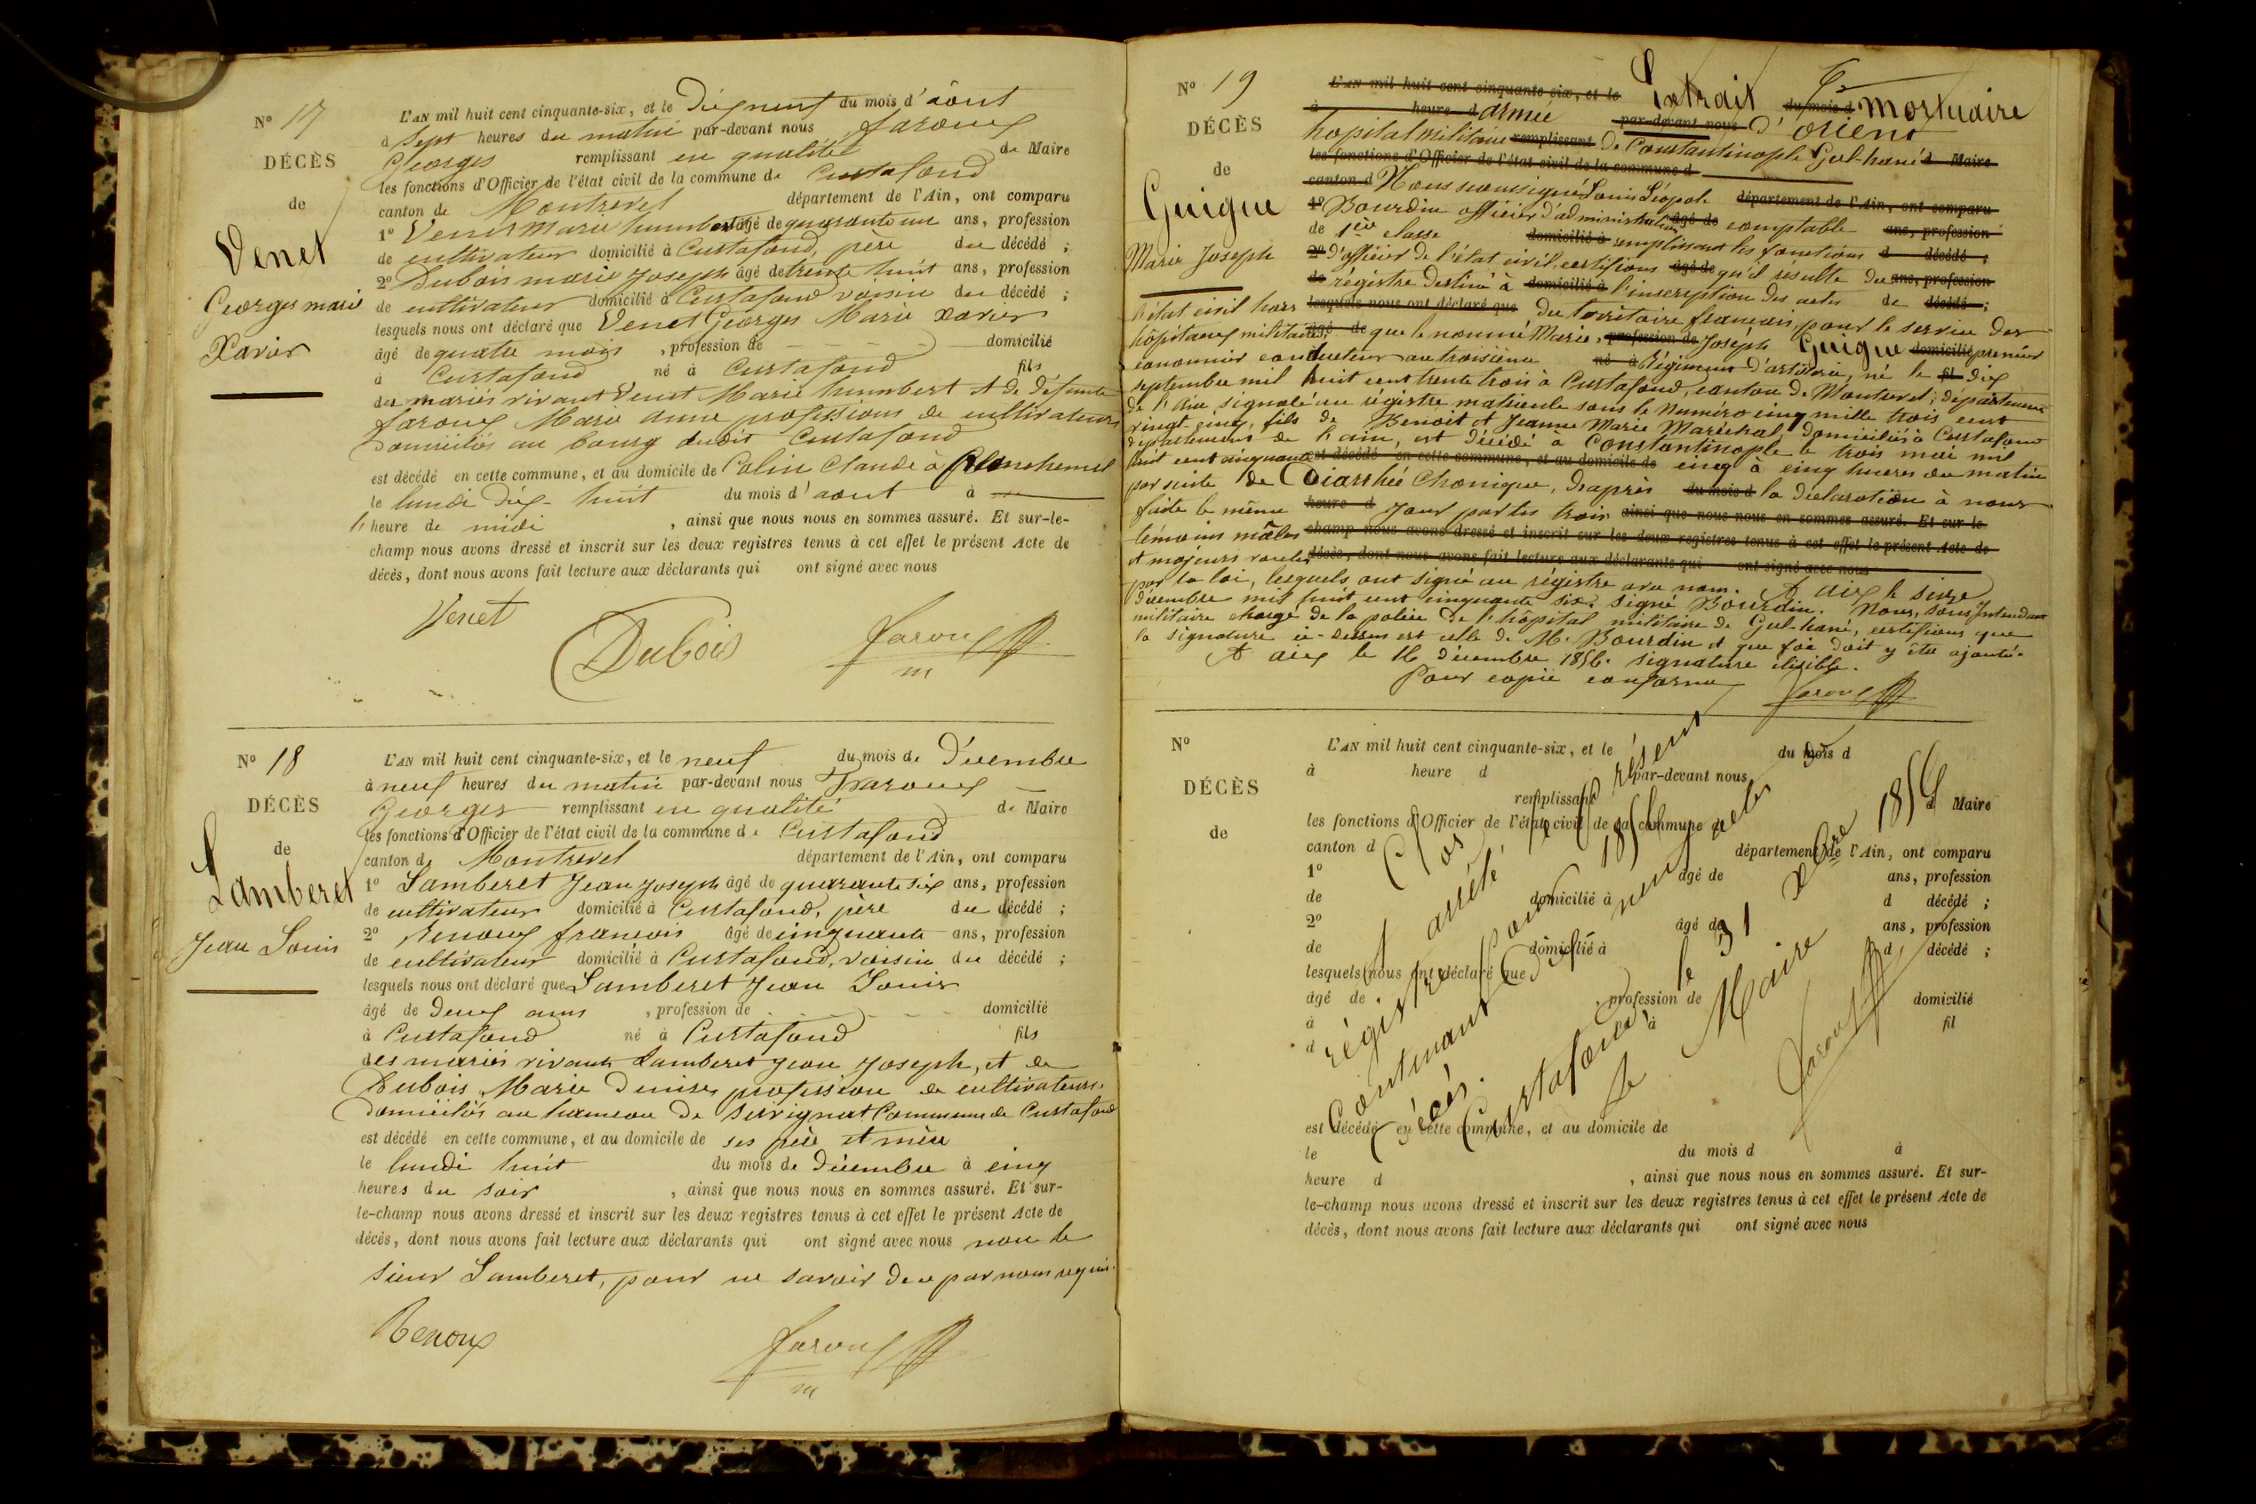 N° 17
DÉCÈS
de
Venet
Georges marie
Xavier
L'AN mil huit cent cinquante-six, et le Dix neuf du mois d'août
à sept heures du matin par-devant nous faroux
Georges remplissant en qualité de Maire
les fonctions d'Officier de l'état civil de la commune de Curtafond
canton de Montrevel département de l'Ain, ont comparu
1° Venet Marie humbert âgé de quarante un ans, profession
de cultivateur domicilié à Curtafond, père du décédé ;
2° Dubois marie Joseph âgé de trente huit ans, profession
de cultivateur domicilié à Curtafond voisin du décédé ;
lesquels nous ont déclaré que Venet Georges Marie xavier
âgé de quatre mois , profession de domicilié
à Curtafond né à Curtafond fils
des mariés vivant Venet Marie humbert et de défunte
faroux Marie Anne professions de cultivateurs
Domiciliés au bourg dudit Curtafond
est décédé en cette commune, et au domicile de Colin Claude à
le lundi dix-huit du mois d'aout à
l'heure de midi , ainsi que nous nous en sommes assuré. Et sur-le-
champ nous avons dressé et inscrit sur les deux registres tenus à cet effet le présent Acte de
décès, dont nous avons fait lecture aux déclarants qui ont signé avec nous
Venet Dubois faroux
m
N° 18
DÉCÈS
de
Lamberet
Jean Louis
L'AN mil huit cent cinquante-six, et le neuf du mois de Décembre
à neuf heures du matin par-devant nous Faroux
Georges remplissant en qualité de Maire
les fonctions d'Officier de l'état civil de la commune de Curtafond
canton de Montrevel département de l'Ain, ont comparu
1° Lamberet Jean Joseph âgé de quarante six ans, profession
de cultivateur domicilié à Curtafond, père du décédé ;
2° Renoux francois âgé de cinquante ans, profession
de cultivateur domicilié à Curtafond, voisin du décédé ;
lesquels nous ont déclaré que Lamberet Jean Louis
âgé de Deux ans , profession de domicilié
à Curtafond né à Curtafond fils
des mariés vivants Lamberet Jean Joseph, et de
Dubois Marie Denise, profession de cultivateurs
Domiciliés au hameau de Servignat Commune de Curtafond
est décédé en cette commune, et au domicile de ses père et mère
le lundi huit du mois de Décembre à cinq
heures du soir , ainsi que nous nous en sommes assuré. Et sur-
le-champ nous avons dressé et inscrit sur les deux registres tenus à cet effet le présent Acte de
décès, dont nous avons fait lecture aux déclarants qui ont signé avec nous non le
sieur Lamberet, pour ne savoir de ce par nous requis.
Renoux faroux
m
N° 19
DÉCÈS
de
Guigue
Marie Joseph
L'AN mil huit cent cinquante-six, et le Extrait du mois d mortuaire
à heure d armée par-devant nous d'orient
hopital militaire remplissant De Constantinople Gul-hané d Maire
les fonctions d'Officier de l'état civil de la commune d
canton d Nous soussigné Louis Léopole département de l'Ain, ont comparu
1° Bourdin officier d'administration âgé de comptable ans, profession
de 1ère classe domicilié à remplissant les fonctions d décédé ;
2° D'officier de l'état civil, certifions âgé de qu'il résulte du ans, profession
de régistre destiné à domicilié à l'inscription des actes de décédé ;
l'état civil hors lesquels nous ont déclaré que du territoire francais, pour le service des
hôpitaux militaires âgé de que le nommé Marie, profession de Joseph Guigue domicilié premier
canonnier conducteur au troisième né à Régiment d'artillerie, né le fil dix
septembre mil huit cent trente trois à Curtafond, canton de Montrevel, département
de l'Ain, signalé au registre matricule sous le numéro cinq mille trois cent
vingt cinq, fils de Benoit et Jeanne Marie Maréchal, domiciliés à Curtafond
département de l'ain, est décédé à Constantinople le trois mai mil
huit cent cinquante est décédé en cette commune, et au domicile de cinq à cinq heures du matin
par suite de Diarrhée Chronique, D'après du mois d la déclaration à nous
faite le même heure d jour par les trois ainsi que nous nous en sommes assuré. Et sur-le
témoins mâles champ nous avons dressé et inscrit sur les deux registres tenus à cet effet le présent Acte de
et majeurs voulus décès, dont nous avons fait lecture aux déclarants qui ont signé avec nous
par la loi, lesquels ont signé au régistre avec nous. A aix le seize
décembre mil huit cent cinquante six. Signé Bourdin. Nous, sous Intendant
militaire chargé de la police de l'hôpital militaire de Gul-hané, certifions que
la signature ci-dessus est celle de Mr. Bourdin et que foi doit y être ajouté.
A aix le 16 décembre 1856. signature illisible.
Pour copie conforme faroux
N°
DÉCÈS
de
L'AN mil huit cent cinquante-six, et le du mois d
à heure d par-devant nous
remplissant d Maire
les fonctions d'Officier de l'état civil de la commune de
canton d département de l'Ain, ont comparu
1° âgé de ans, profession
de domicilié à d décédé ;
2° âgé de ans, profession
de domicilié à d décédé ;
lesquels nous ont déclaré que
âgé de , profession de domicilié
à à fil
d
est décédé en cette commune, et au domicile de
le du mois d à
heure d , ainsi que nous nous en sommes assuré. Et sur-
le-champ nous avons dressé et inscrit sur les deux registres tenus à cet effet le présent Acte de
décès, dont nous avons fait lecture aux déclarants qui ont signé avec nous
Clos et arrêté le présent
régistre pour 1856
Contenant Dix neuf actes de
décès.
Curtafond, le 31 Xbre 1856
Le Maire
Faroux